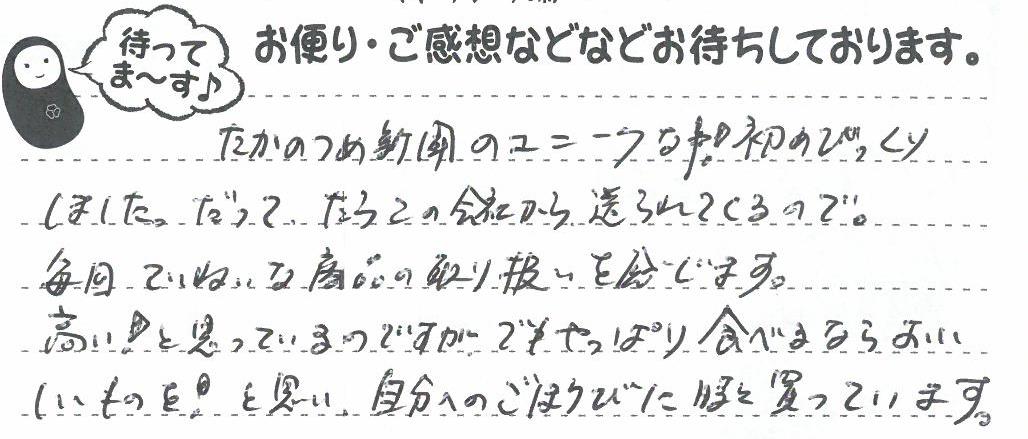 待って
ま〜す♪
お便り・ご感想などなどお待ちしております。
たかのつめ新聞のユニークな事!初めびっくり
しました。だって、たらこの会社から送られてくるので。
毎回ていねいな商品の取り扱いを感じます。
高い!と思っているのですが、でもやっぱり食べるならおい
しいものを!と思い、自分へのごほうびに買っています。